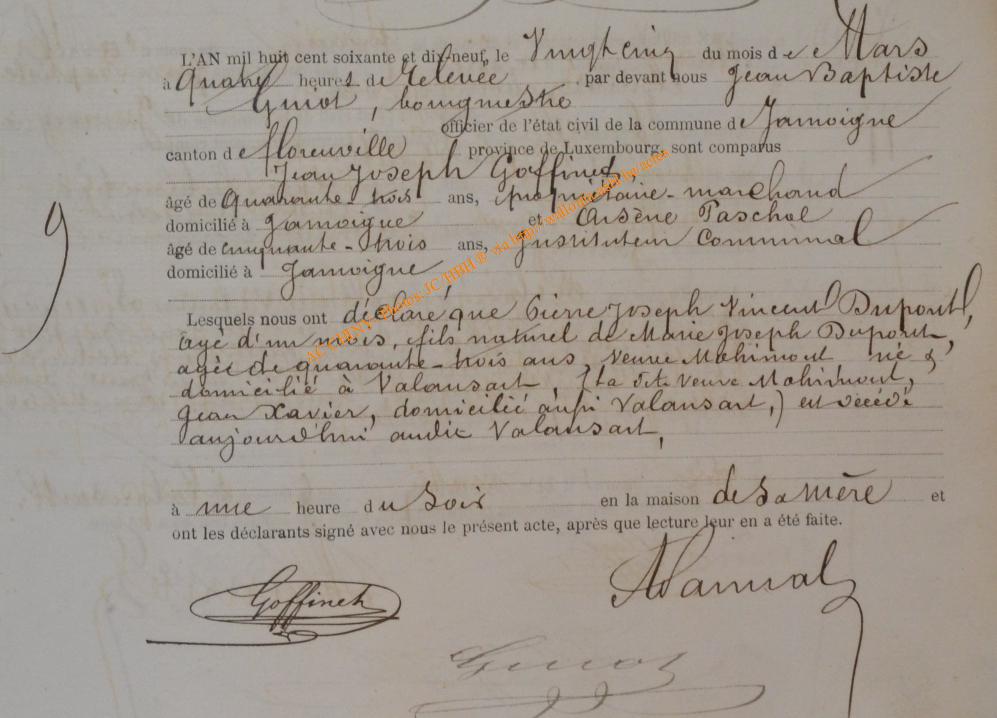 L'AN mil huit cent soixante et dix-neuf, le Vingt cinq du mois de Mars
à quatre heures de relevée par devant nous Jean Baptiste
Guiot, bourgmestre
officier de l'état civil de la commune de Jamoigne
canton de florenville province de Luxembourg, sont comparus
Jean Joseph Goffinet,
âgé de quarante-trois ans, propriétaire-marchand
domicilié à Jamoigne et Arsène Paschal
âgé de cinquante-trois ans, Instituteur Communal
domicilié à Jamoigne,
9
Lesquels nous ont déclaré que Pierre Joseph Vincent Dupont,
agé d'un mois, fils naturel de Marie Joseph Dupont,
agée de quarante-trois ans, Veuve Mahimont né &
domicilié à Valansart, (la dite Veuve Mahimont,
Jean Xavier, domiciliée aussi Valansart,) est décédé
aujourd'hui audit Valansart,
à une heure du Soir en la maison de Sa Mère et
ont les déclarants signé avec nous le présent acte, après que lecture leur en a été faite.
Goffinet
Guiot